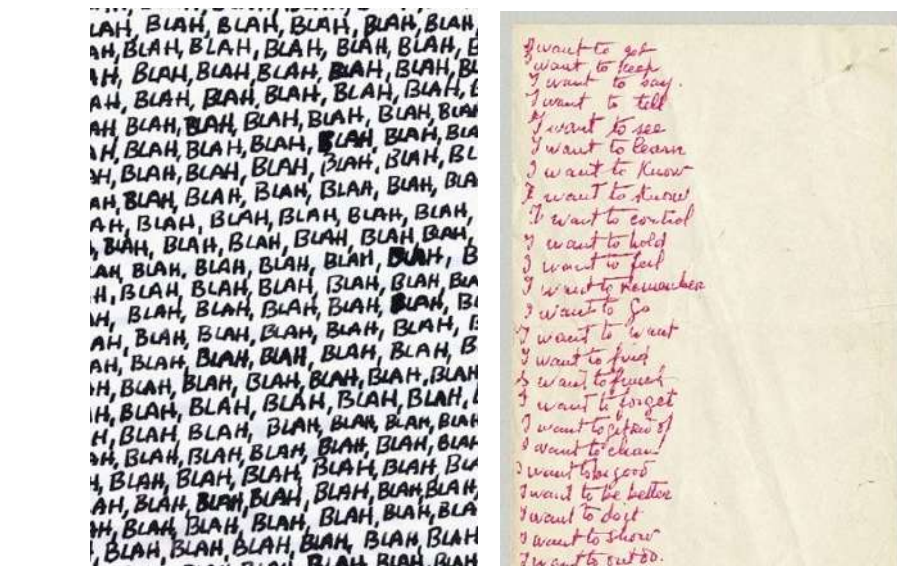 LAH, BLAH, BLAH, BLAH, BLAH, BLAH,
AH, BLAH, BLAH, BLAH, BLAH, BLAH, B
AH, BLAH, BLAH, BLAH, BLAH, BLAH, BL
AH, BLAH, BLAH, BLAH, BLAH, BLAH, B
AH, BLAH, BLAH, BLAH, BLAH, BLAH, BLAH
AH, BLAH, BLAH, BLAH, BLAH, BLAH, BLA
AH, BLAH, BLAH, BLAH, BLAH, BLAH, BL
AH, BLAH, BLAH, BLAH, BLAH, BLAH, BLA
AH, BLAH, BLAH, BLAH, BLAH, BLAH,
BLAH, BLAH, BLAH, BLAH, BLAH, BLAH,
AH, BLAH, BLAH, BLAH, BLAH, BLAH, B
H, BLAH, BLAH, BLAH, BLAH, BLAH, BLA
AH, BLAH, BLAH, BLAH, BLAH, BLAH, BL
AH, BLAH, BLAH, BLAH, BLAH, BLAH, B
AH, BLAH, BLAH, BLAH, BLAH, BLAH, B
H, BLAH, BLAH, BLAH, BLAH, BLAH, BLAH
H, BLAH, BLAH, BLAH, BLAH, BLAH,
H, BLAH, BLAH, BLAH, BLAH, BLAH, BLAH
AH, BLAH, BLAH, BLAH, BLAH, BLAH, BLAH
BLAH, BLAH, BLAH, BLAH, BLAH, BLA
AH, BLAH, BLAH, BLAH, BLAH, BLAH, BLAH
H, BLAH, BLAH, BLAH, BLAH, BLAH, BLA
BLAH, BLAH, BLAH, BLAH, BLAH, BLAH
BLAH, BLAH, BLAH
I want to get
I want to keep
I want to say.
I want to tell
I want to see
I want to learn
I want to Know
I want to know
I want to control
I want to hold
I want to feel
I want to remember
I want to Go
I want to want
I want to find
I want to finish
I want to forget
I want to get rid of
I want to clean
I want to be good
I want to be better
I want to do it
I want to show
I want to out do.